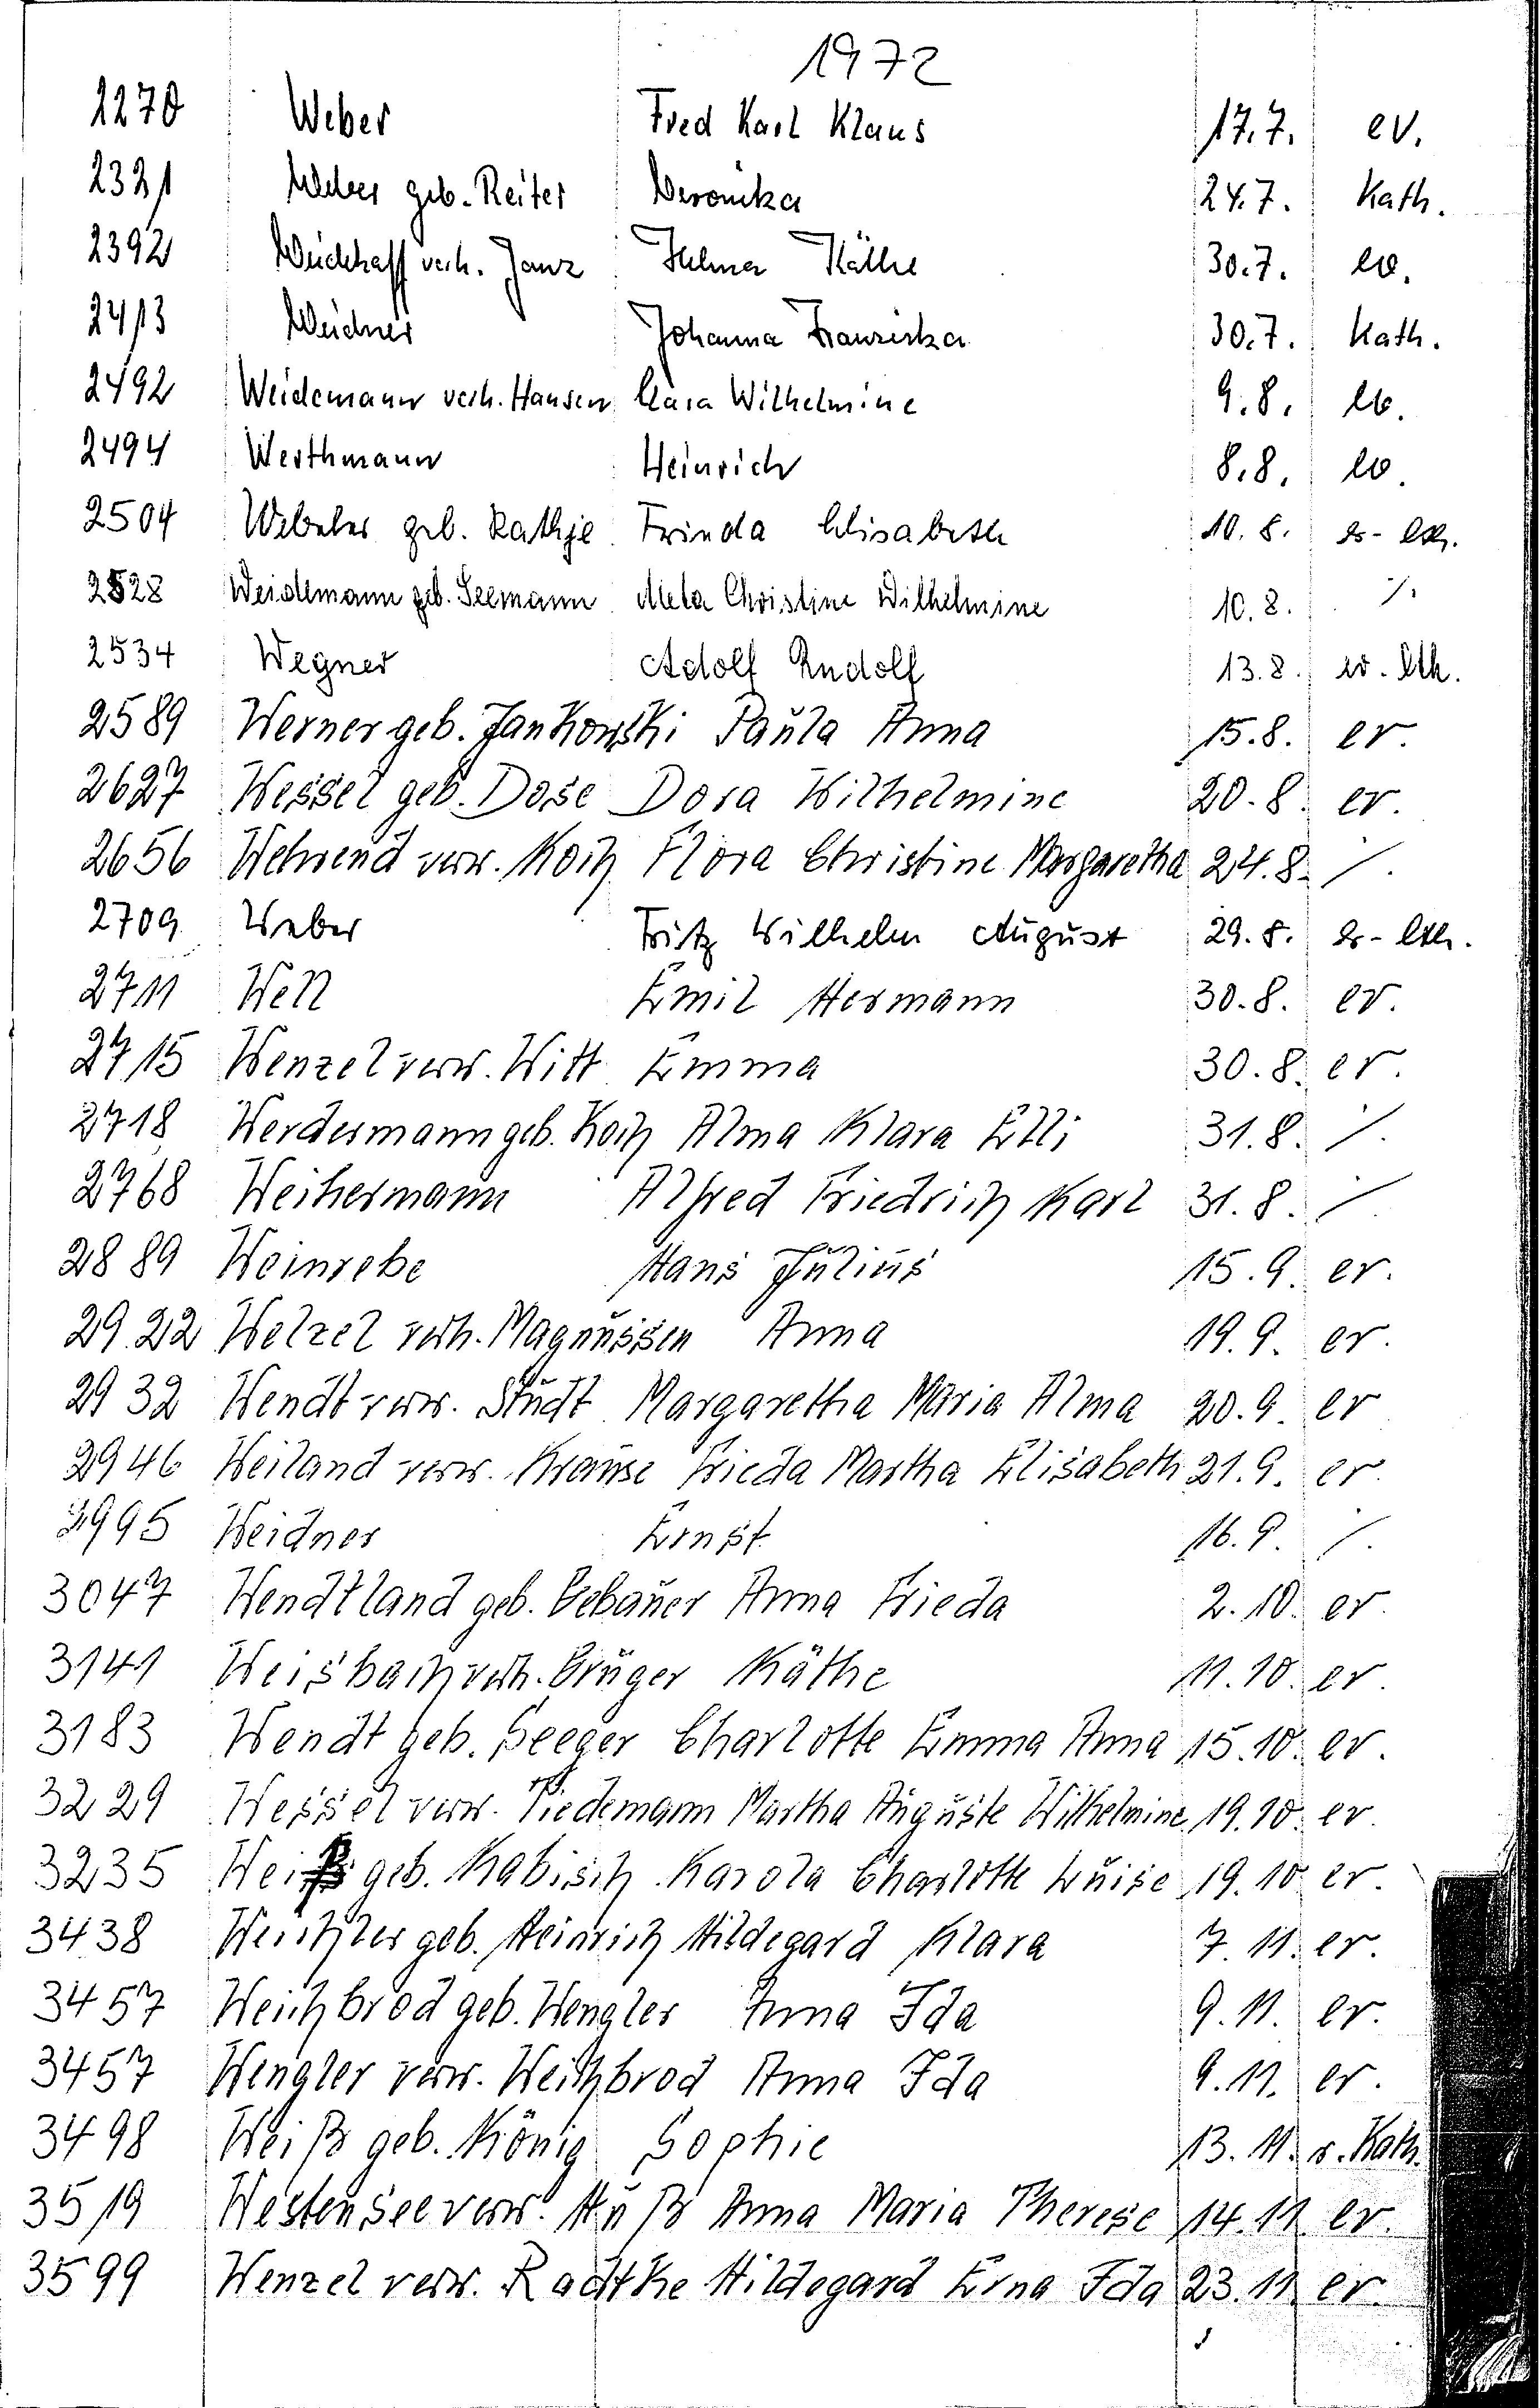 1972
2270 Weber Fred Karl Klaus 17.7. ev.
2321 Weber geb. Reiter Veronika 24.7. Kath.
2392 verh. Janz Helma Käthe 30.7. ev.
2413 Weidner Johanna Franziska 30.7. Kath.
2492 Weidemann verh. Hansen Clara Wilhelmine 9.8. ev.
2494 Werthmann Heinrich 8.8. ev.
2504 geb. Rathje Frieda Elisabeth 10.8. ev-lth.
2528 Weidemann geb. Seemann Meta Christine Wilhelmine 10.8. ⁒
2534 Wegner Adolf Rudolf 13.8. ev.lth.
2589 Werner geb. Jankowski Paula Anna 15.8. ev.
2627 Wessel geb. Dose Dora Wilhelmine 20.8. ev.
2656 Wehrend verw. Koch Flora Christine Margaretha 24.8. ⁒
2709 Weber Fritz Wilhelm August 29.8. ev-lth.
2711 Well Emil Hermann 30.8. ev.
2715 Wenzel verw. Witt Emma 30.8. ev.
2718 Werdermann geb. Koch Alma Klara Elli 31.8. ⁒
2768 Weihermann Alfred Friedrich Karl 31.8. ⁒
2889 Weinrebe Hans Julius 15.9. ev.
2922 Welzel verh. Magnussen Anna 19.9. ev.
2932 Wendt verw. Studt Margaretha Maria Alma 20.9. ev
2946 Weiland verw. Krause Frieda Martha Elisabeth 21.9. ev.
2995 Weidner Ernst 16.9. ⁒
3047 Wendtland geb. Gebauer Anna Frieda 2.10. ev.
3141 Weisbach verh. Krüger Käthe 11.10. ev.
3183 Wendt geb. Seeger Charlotte Emma Anna 15.10. ev.
3229 Wessel verw. Tiedemann Martha Auguste Wilhelmine 19.10. ev.
3235 Weiß geb. Kabisch Karola Charlotte Luise 19.10. ev.
3438 geb. Heinrich Hildegard Klara 7.11. ev.
3457 Weichbrod geb. Wengler Anna Ida 9.11. ev.
3457 Wengler verw. Weichbrod Anna Ida 9.11. ev.
3498 Weiß geb. König Sophie 13.11. r.Kath.
3519 Westensee verw. Huß Anna Maria Therese 14.11. ev.
3599 Wenzel verw. Radtke Hildegard Erna Ida 23.11. ev.